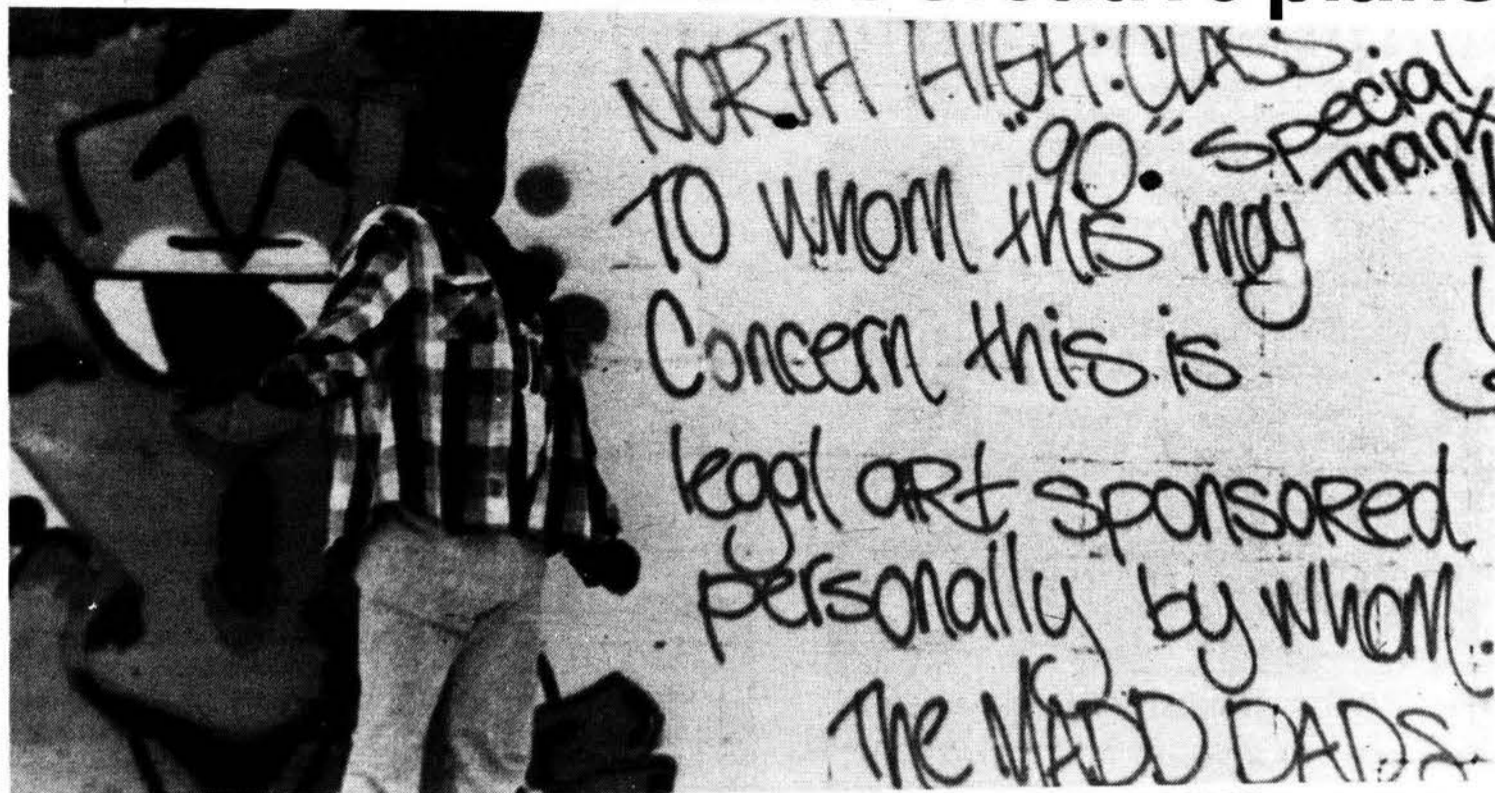 NORTH HIGH: CLASS.
"90". special
Thanx
TO whom this may
Concern this is
legal aRt sponsoRed
personally by whom.
The MADD DADS.